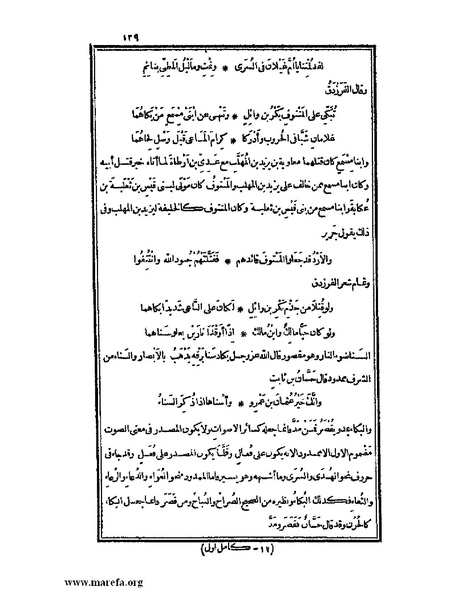 ١٣٩
لقد لمتنا يا أم غيلان في السرى * ونمت وما ليل المطي بنائم
وقال الفرزدق
تبكي على المنتوف بكر بن وائل * وتنهى عن ابني مسمع من بكاهما
غلامان شبا في الحروب وأدركا * كرام المساعي قبل وصل لحاهما
وابنا مسمع كان قتلهما معاوية بن يزيد بن المهلب مع عدي بن أرطاة لما أتاه خبر قتل أبيه
وكان ابنا مسمع ممن خالف على يزيد بن المهلب والمنتوف كان مولى لبني قيس بن ثعلبة بن
عكابة وابنا مسمع من بني قيس بن ثعلبة وكان المنتوف كالخليفة ليزيد بن المهلب وفي
ذلك يقول جرير
والأزد قد جعلوا المنتوف قائدهم * فقتلتهم جنود الله وانتتفوا
وتمام شعر الفرزدق
ولو قتلا من جذم بكر بن وائل * لكان على الناعي شديدا بكاهما
ولو كان حيا مالك وابن مالك * إذا أوقدا نارين يعلو سناهما
السنا ضوء النار وهو مقصور قال الله عز وجل يكاد سنا برقه يذهب بالأبصار والسناء من
الشرف ممدود قال حسان بن ثابت
وإنك خير عثمان بن عمرو * وأسناها إذا ذكر السناء
والبكاء يمد ويقصر فمن مد فإنما جعله كسائر الأصوات ولا يكون المصدر في معنى الصوت
مضموم الأول إلا ممدودا لأنه يكون على فعال وقلما يكون المصدر على فعل وقد جاء في
حروف نحو الهدى والسرى وما أشبهه وهو يسير فأما الممدود فنحو العواء والدعاء والرغاء
والثغاء فكذلك البكاء ونظيره من الصحيح الصراخ والنباح ومن قصر فإنما جعل البكا
كالحزن وقد قال حسان فقصر ومد
(١٧ - كامل أول)
www.marefa.org